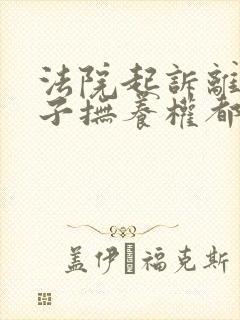 法院起訴離
子撫養權都
盖伊·福克斯